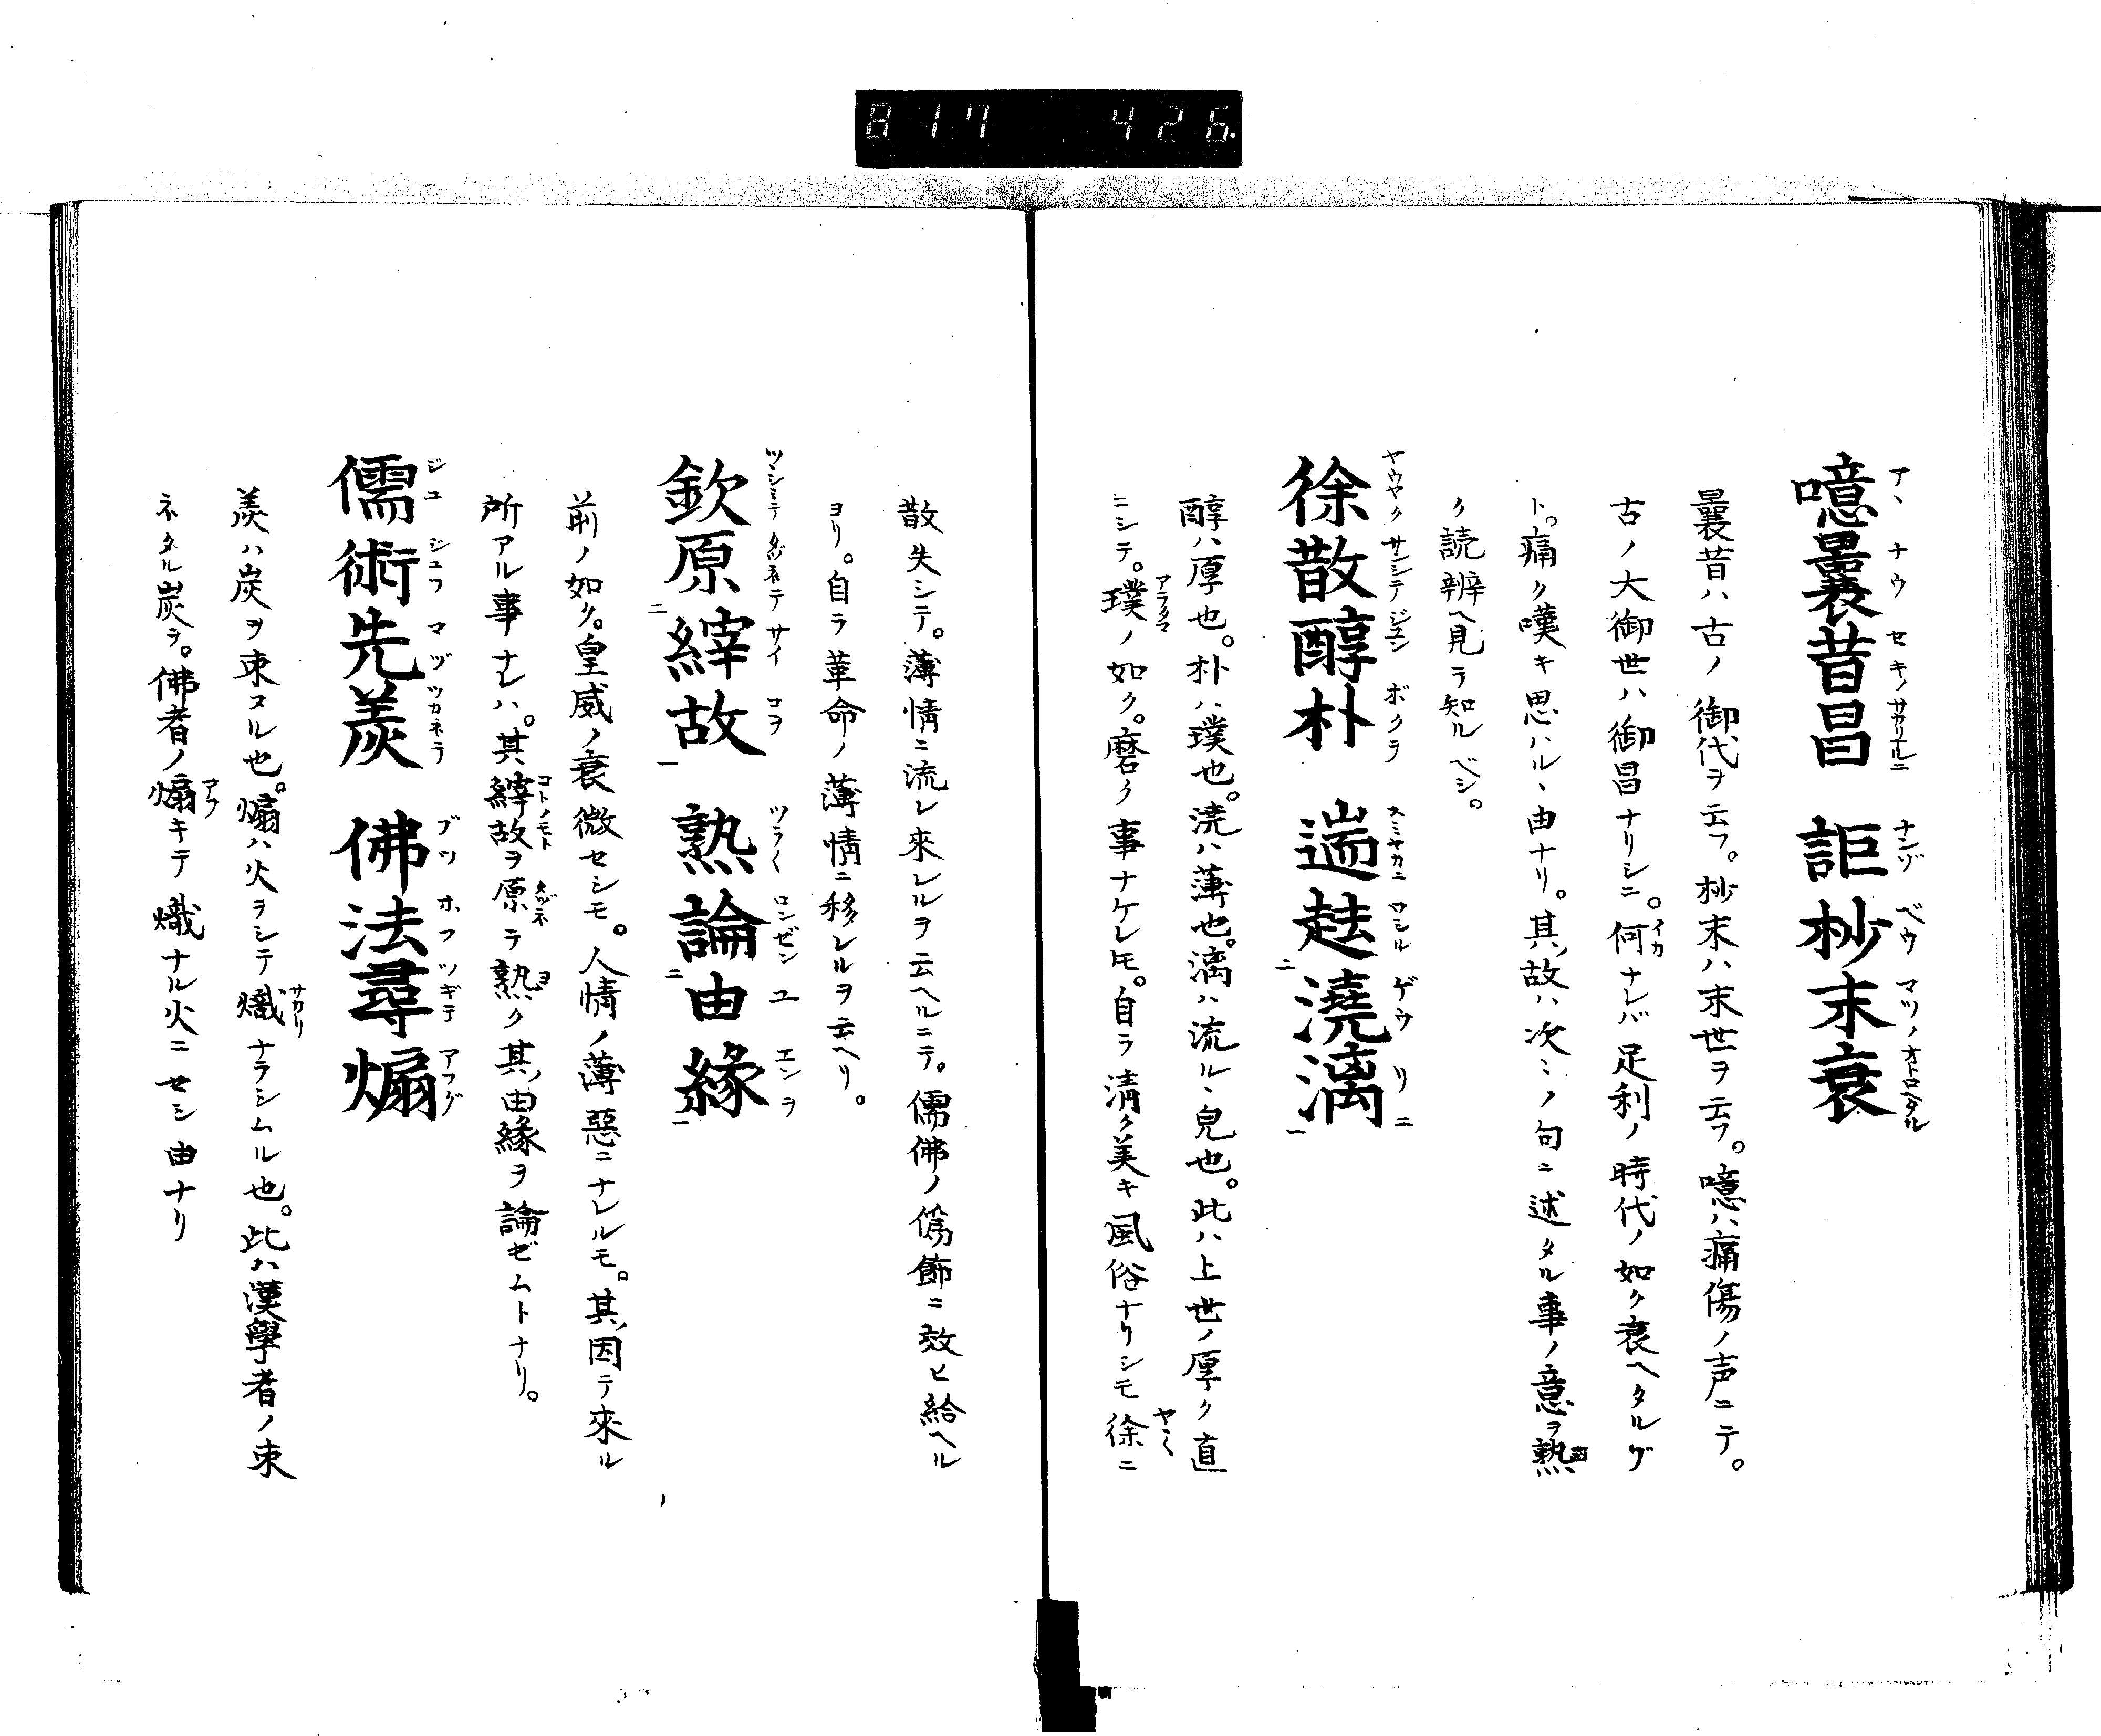 817 426
噫曩昔昌 詎杪末衰
曩昔ハ古ノ御代ヲ云フ。杪末ハ末世ヲ云フ。噫ハ痛傷ノ声ニテ。
古ノ大御世ハ御昌ナリシニ。何ナレバ足利ノ時代ノ如ク衰ヘタルゾ
ト。痛ク嘆キ思ハルヽ由ナリ。其ノ故ハ次ミノ句ニ述タル事ノ意ヲ熟
ク読辨ヘ見テ知ルベシ。
徐散醇朴 遄赱澆漓
醇ハ厚也。朴ハ璞也。澆ハ薄也。漓ハ流ルヽ皃也。此ハ上世ノ厚ク直
ニシテ。璞ノ如ク。磨ク事ナケレ𪜈。自ラ清ク美キ風俗ナリシモ徐ニ
散失シテ。薄情ニ流レ來レルヲ云ヘルニテ。儒佛ノ偽飾ニ效ヒ給ヘル
ヨリ。自ラ革命ノ薄情ニ移レルヲ云ヘリ。
欽原縡故 熟論由緣
前ノ如ク。皇威ノ衰微セシモ。人情ノ薄惡ニナレルモ。其ノ因テ來ル
所アル事ナレハ。其縡故ヲ原テ熟ク其ノ由緣ヲ論ゼムトナリ。
儒術先羨 佛法尋煽
羨ハ炭ヲ束ヌル也。煽ハ火ヲシテ熾ナラシムル也。此ハ漢學者ノ束
ネタル炭ヲ。佛者ノ煽キテ熾ナル火ニセシ由ナリ